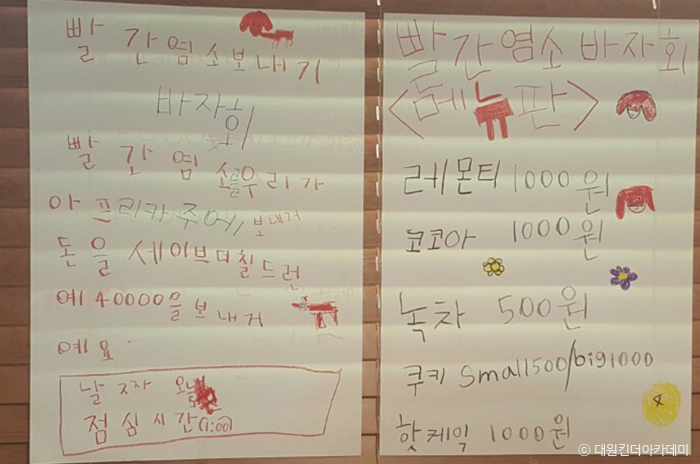 빨간염소보내기
바자회
빨간염소를우리가
아프리카주에보내거
돈을 세이브더칠드런
에 40000을보내거
예요.
날짜
점심시간(1:00)
빨간염소 바자회
<메뉴판>
레몬티 1000원
코코아 1000원
녹차 500원
쿠키 Small500/big1000
핫케익 1000원
© 대원킨더아카데미